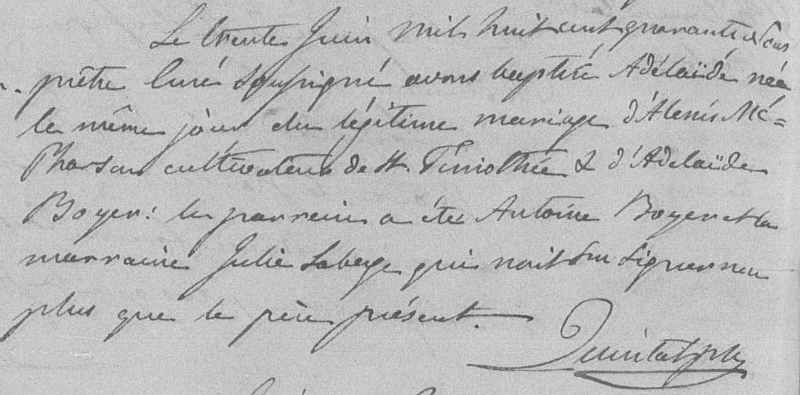 Le trente Juin mil huit cent quarante &
prêtre Curé Soussigné avons baptisé Adélaïde née
le même jour du légitime mariage d'Alexis Mc=
Pherson cultivateur de St Timothée & d'Adelaïde
Boyer: le parrein a été Antoine Boyer et la
marraine Julie Laberge qui n'ont su signer non
plus que le père présent.